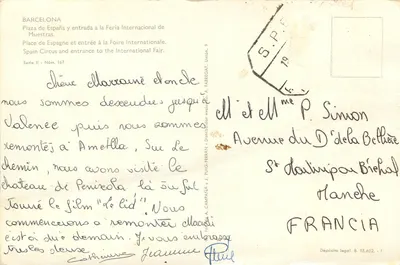 BARCELONA
Plaza de España y entrada a la Feria Internacional de
Muestras.
Place de Espagne et entrée à la Foire Internationale.
Spain Circus and entrance to the International Fair.
Serie II - Núm. 167
Chère Marraine et oncle
nous sommes descendus jusqu'à
Valence puis nous sommes
remontés à Ametlla, Sur le
chemin, nous avons visité le
chateau de Peniscola là où fut
tourné le film "Le Cid". Nous
commencerons à remonter Mardi
c'est à dire demain. Je vous embrasse
très
Catherine Jeannine
S.P.
M et Mme P. Simon
Avenue du Dr de la Bellière
St
Manche
FRANCIA
Depósito legal B.